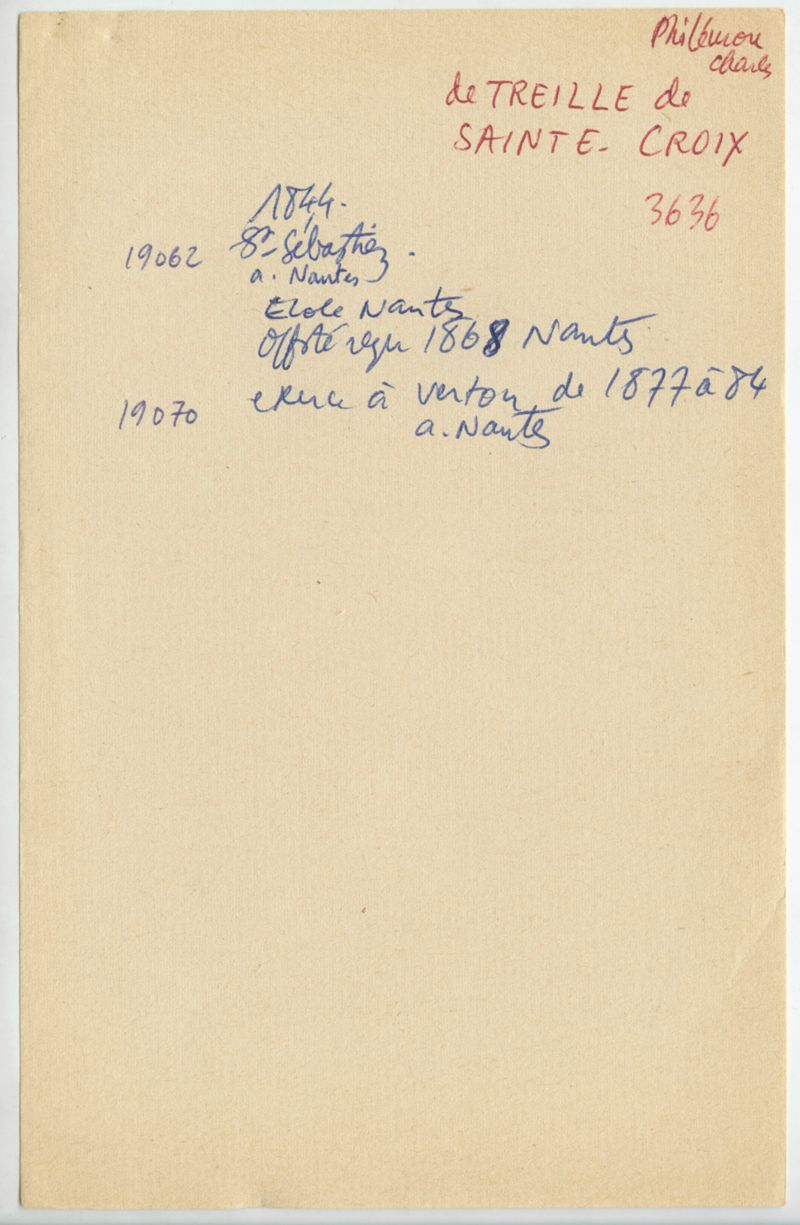 Philémon
Charles
de TREILLE de
SAINTE-CROIX
3636
1844.
19062 St-Sébastien.
a. Nantes
Ecole Nantes
Offté reçu 1868 Nantes
19070 exerce à Vertou de 1877 à 84
a. Nantes